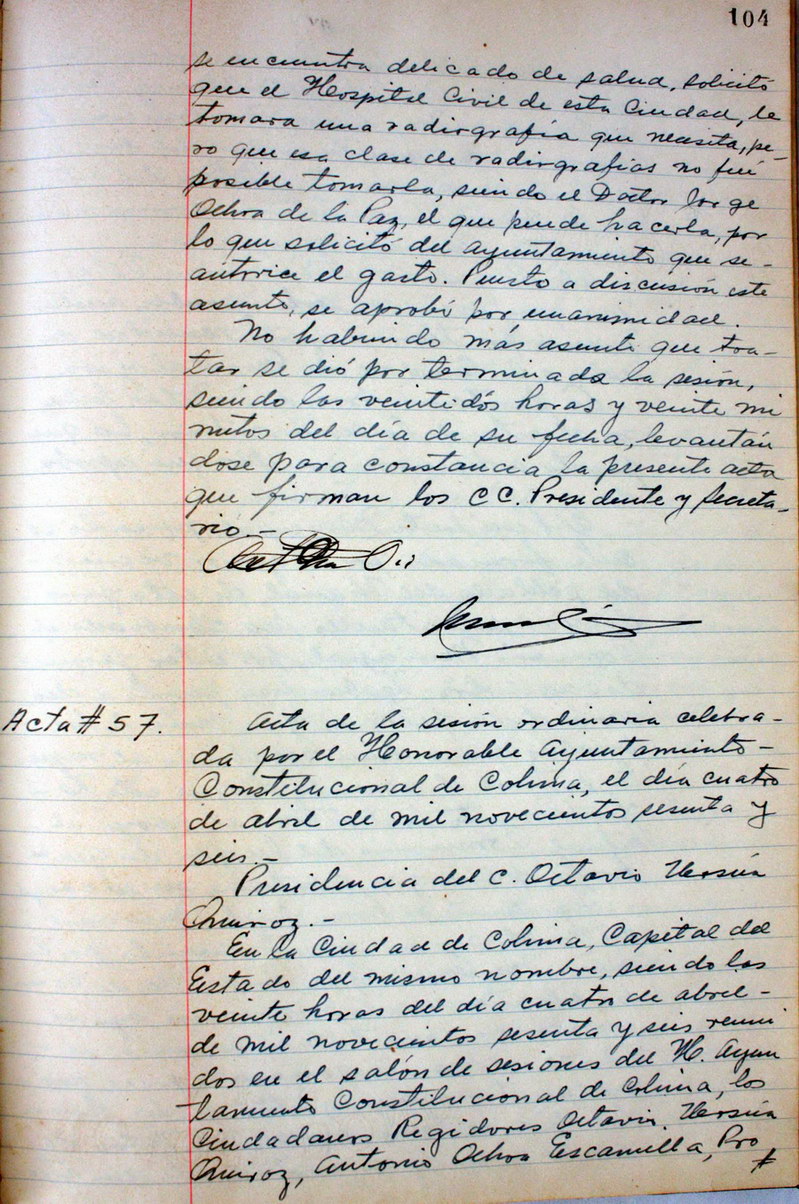 104
se encuentra delicado de salud, solicitó
que el Hospital Civil de esta Ciudad, le
tomara una radiografía que necesita, pe-
ro que esa clase de radiografias no fué
posible tomarla, siendo el Doctor Jorge
Ochoa de la Paz, el que puede hacerla, por
lo que solicitó del Ayuntamiento que se-
autorice el gasto. Puesto a discusión este
asunto, se aprobó por unanimidad.
No habiendo más asunto que tra-
tar se dió por terminada la sesión,
siendo las veintidós horas y veinte mi
nutos del día de su fecha, levantán
dose para constancia la presente acta
que firman los CC. Presidente y Secreta-
rio.-
Acta # 57.
Acta de la sesión ordinaria celebra-
da por el Honorable Ayuntamiento-
Constitucional de Colima, el día cuatro
de abril de mil novecientos sesenta y
seis.-
Presidencia del C. Octavio
Quiroz.-
En la Ciudad de Colima, Capital del
Estado del mismo nombre, siendo las
veinte horas del día cuatro de abril-
de mil novecientos sesenta y seis reuni
dos en el salón de sesiones del H. Ayun
tamiento Constitucional de Colima, los
Ciudadanos Regidores Octavio
Quiroz, Antonio Ochoa Escamilla, Pro